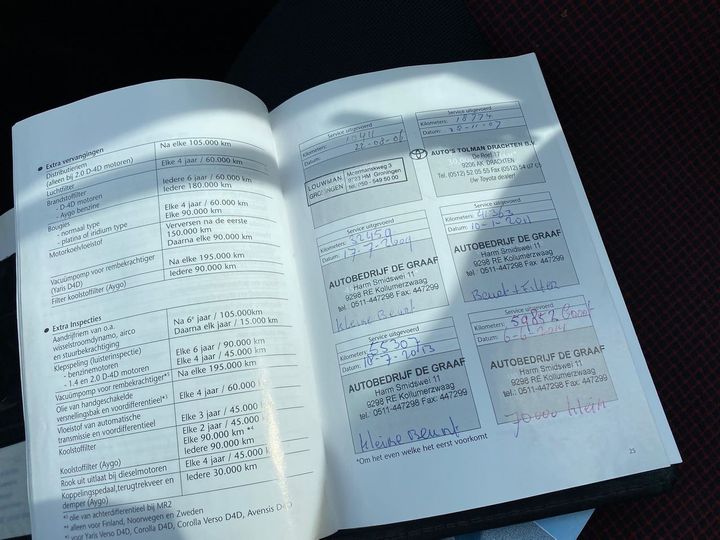 • Extra vervangingen
Distributieriem
(alleen bij 2.0 D-4D motoren)
Na elke 105.000 km
Luchtfilter
Elke 4 jaar / 60.000 km
Brandstoffilter
- D-4D motoren
Iedere 6 jaar / 60.000 km
- Aygo benzine
Iedere 180.000 km
Bougies
- normaal type
Elke 4 jaar / 60.000 km
- platina of iridium type
Elke 90.000 km
Motorkoelvloeistof
Verversen na de eerste
150.000 km
Daarna elke 90.000 km
Vacuümpomp voor rembekrachtiger
(Yaris D4D)
Na elke 195.000 km
Filter koolstoffilter (Aygo)
Iedere 90.000 km
• Extra Inspecties
Aandrijfriem van o.a.
wisselstroomdynamo, airco
en stuurbekrachtiging
Na 6e jaar / 105.000km
Daarna elk jaar / 15.000 km
Klepspeling (luisterinspectie)
- benzinemotoren
Elke 6 jaar / 90.000 km
- 1.4 en 2.0 D-4D motoren
Elke 4 jaar / 45.000 km
Vacuümpomp voor rembekrachtiger*³
Na elke 195.000 km
Olie van handgeschakelde
versnellingsbak en voordifferentieel*³
Elke 4 jaar / 60.000
Vloeistof van automatische
transmissie en voordifferentieel
Elke 3 jaar / 45.000
Koolstoffilter
Elke 2 jaar / 45.000 k
Elke 90.000 km *⁴
Koolstoffilter (Aygo)
Iedere 90.000 km
Rook uit uitlaat bij dieselmotoren
Elke 4 jaar / 45.000 k
Koppelingspedaal,terugtrekveer en
demper (Aygo)
Iedere 30.000 km
*³ olie van achterdifferentieel bij MR2
*⁴ alleen voor Finland, Noorwegen en Zweden
voor Yaris Verso D4D, Corolla D4D, Corolla Verso D4D, Avensis D4D
Service uitgevoerd
Kilometers:
Datum: 22-08-06
LOUWMAN
GRONINGEN
9723 HM Groningen
tel. 050 - 549 50 00
Service uitgevoerd
Kilometers: 18774
Datum: 28-11-07
AUTO'S TOLMAN DRACHTEN BV
De Roef 17
9206 AK DRACHTEN
Tel. (0512) 52 05 55 Fax (0512) 54 07 65
Uw Toyota dealer!
Service uitgevoerd
Kilometers: 32459
Datum: 17-7-2009
AUTOBEDRIJF DE GRAAF
Harm Smidswei 11
9298 RE Kollumerzwaag
tel. 0511-447298 Fax. 447299
kleine Beurt
Service uitgevoerd
Kilometers: 41363
Datum: 10-1-2011
AUTOBEDRIJF DE GRAAF
Harm Smidswei 11
9298 RE Kollumerzwaag
tel: 0511-447298 Fax: 447299
Beurt + Filter
Service uitgevoerd
Kilometers: 55307
Datum: 18-7-2013
AUTOBEDRIJF DE GRAAF
Harm Smidswei 11
9298 RE Kollumerzwaag
tel.: 0511-447298 Fax. 447299
kleine Beurt
Service uitgevoerd
Kilometers: 59852 Groot
Datum: 6-6-2014
AUTOBEDRIJF DE GRAAF
Harm Smidswei 11
9298 RE Kollumerzwaag
tel.: 0511-447298 Fax. 447299
70.000 klein
*Om het even welke het eerst voorkomt
25